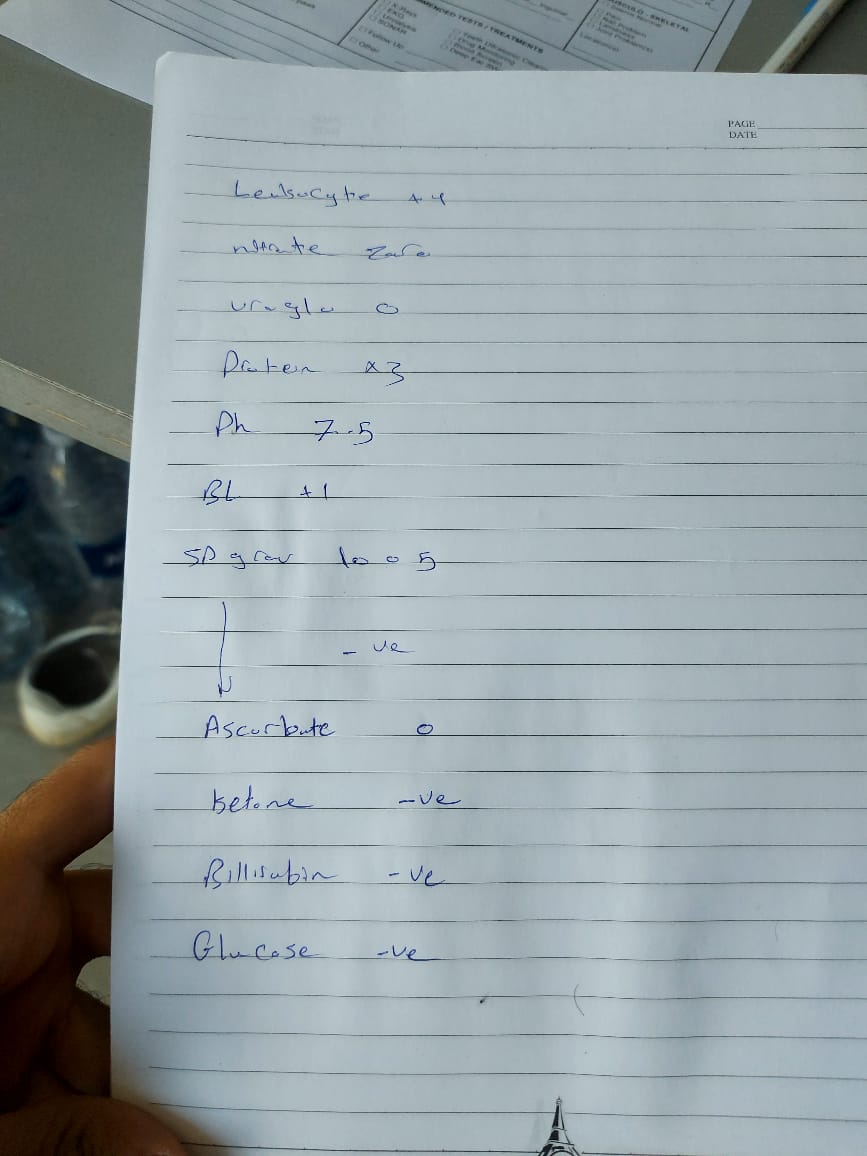 X-Rays
EKG
Urinalysis
SONAR
Follow Up
Other
MMENDED TESTS / TREATMENTS
USCULO - SKELETAL
PAGE
DATE
Leukocyte +4
nitrate Zaro
uroglu 0
Protein +3
Ph 7.5
BL +1
SP grav 1005
- ve
Ascurbate 0
ketone -ve
Billirubin -ve
Glucose -ve